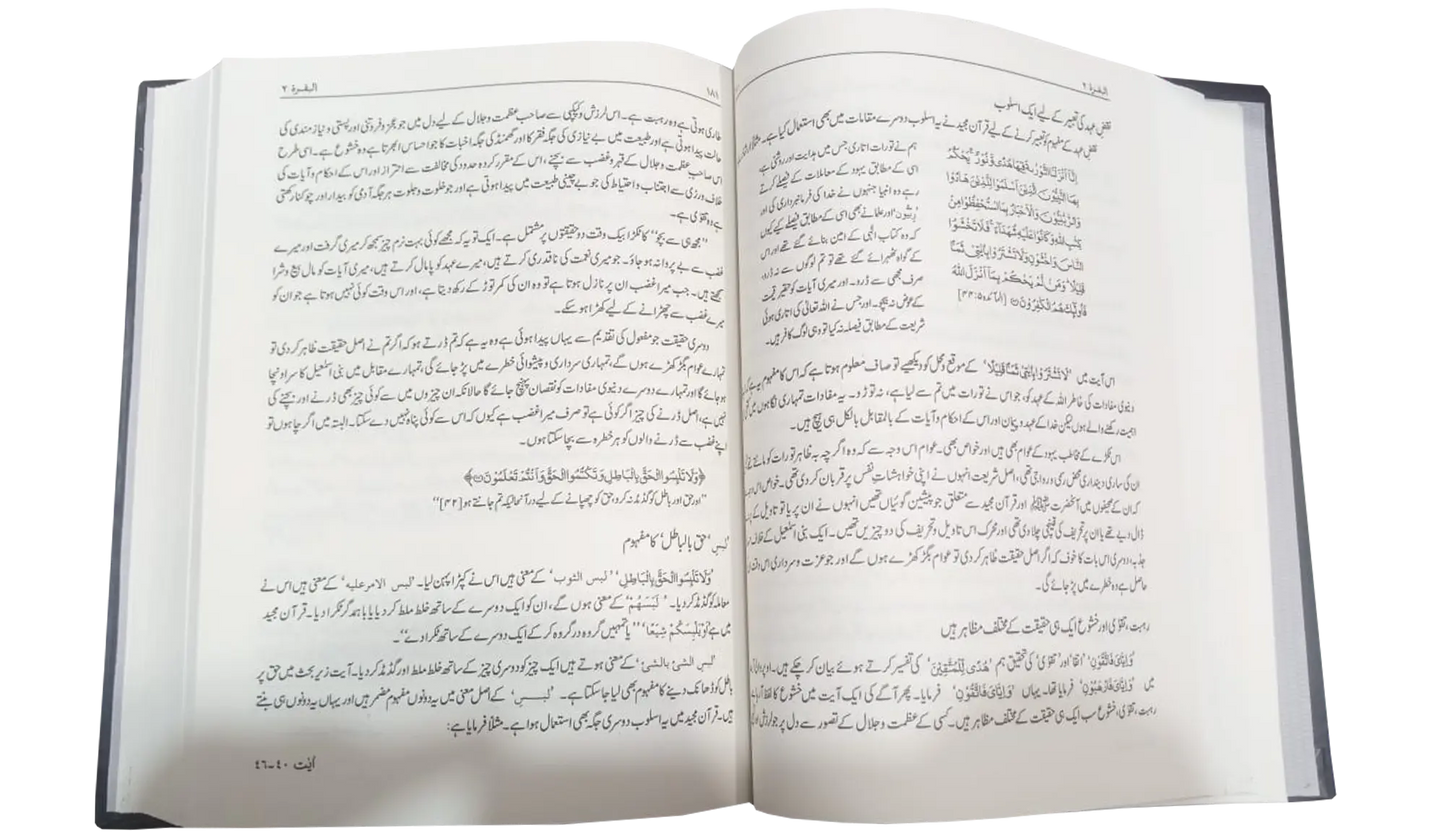 البقرة ۲
نقضِ عہد کی تعبیر کے لیے ایک اسلوب
نقضِ عہد کے مفہوم کو تعبیر کرنے کے لیے قرآن مجید نے یہ اسلوب دوسرے مقامات میں بھی استعمال کیا ہے۔ مثلاً
إِنَّآ أَنزَلْنَا التَّوْرٰىةَ فِيهَا هُدًى وَنُورٌ ۚ يَحْكُمُ
بِهَا النَّبِيُّونَ الَّذِينَ أَسْلَمُوا لِلَّذِينَ هَادُوا
وَالرَّبَّنِيُّونَ وَالْأَحْبَارُ بِمَا اسْتُحْفِظُوا مِنْ
كِتٰبِ اللهِ وَكَانُوا عَلَيْهِ شُهَدَآءَ ۚ فَلَا تَخْشَوُا
النَّاسَ وَاخْشَوْنِ وَلَا تَشْتَرُوا بِاٰيٰتِي ثَمَنًا
قَلِيلًا ۚ وَمَنْ لَّمْ يَحْكُمْ بِمَآ أَنزَلَ اللهُ
فَأُولٰٓئِكَ هُمُ الْكٰفِرُونَ [المائدہ ۵:۴۴]
ہم نے تورات اتاری جس میں ہدایت اور روشنی ہے،
اسی کے مطابق یہود کے معاملات کے فیصلے کرتے
رہے وہ انبیا جنہوں نے خدا کی فرمانبرداری کی اور
'ربیّون' اور علما نے بھی اسی کے مطابق فیصلے کیے کیوں
کہ وہ کتاب الٰہی کے امین بنائے گئے تھے اور اس
کے گواہ ٹھہرائے گئے تھے تو تم لوگوں سے نہ ڈرو،
صرف مجھی سے ڈرو۔ اور میری آیات کو حقیر قیمت
کے عوض نہ بیچو۔ اور جس نے اللہ تعالیٰ کی اتاری ہوئی
شریعت کے مطابق فیصلہ نہ کیا تو وہی لوگ کافر ہیں۔
اس آیت میں 'لَا تَشْتَرُوا بِاٰيٰتِي ثَمَنًا قَلِيلًا' کے موقع محل کو دیکھیے تو صاف معلوم ہوتا ہے کہ اس کا مفہوم یہ ہے کہ
دنیوی مفادات کی خاطر اللہ کے عہد کو، جو اس نے تورات میں تم سے لیا ہے، نہ توڑو۔ یہ مفادات تمہاری نگاہوں میں کتنی
اہمیت رکھنے والے ہوں لیکن خدا کے عہد و پیمان اور اس کے احکام و آیات کے بالمقابل بالکل ہی ہیچ ہیں۔
اس ٹکڑے کے مخاطب یہود کے عوام بھی ہیں اور خواص بھی۔ عوام اس وجہ سے کہ وہ اگرچہ بہ ظاہر تورات کو مانتے تھے
ان کی ساری دینداری محض رسمی اور رواجی تھی، اصل شریعت انہوں نے اپنی خواہشاتِ نفس پر قربان کر دی تھی۔ خواص اس وجہ سے
کہ ان کے صحیفوں میں آنحضرت ﷺ اور قرآن مجید سے متعلق جو پیشین گوئیاں تھیں انہوں نے ان پر یا تو تاویل کے
ڈال دیے تھے یا ان پر تحریف کی قینچی چلا دی تھی اور محرک اس تاویل و تحریف کی دو چیزیں تھیں۔ ایک بنی اسمٰعیل کے خلاف
جذبہ، دوسری اس بات کا خوف کہ اگر اصل حقیقت ظاہر کر دی تو عوام بگڑ کھڑے ہوں گے اور جو عزت و سرداری اس وقت
حاصل ہے وہ خطرے میں پڑ جائے گی۔
رہبت، تقوٰی اور خشوع ایک ہی حقیقت کے مختلف مظاہر ہیں
'وَاِيَّايَ فَاتَّقُونِ' 'اتقا' اور 'تقوٰی' کی تحقیق ہم 'هُدًى لِّلْمُتَّقِينَ' کی تفسیر کرتے ہوئے بیان کر چکے ہیں۔ اوپر والی
میں 'وَاِيَّايَ فَارْهَبُونِ' فرمایا تھا۔ یہاں 'وَاِيَّايَ فَاتَّقُونِ' فرمایا۔ پھر آگے کی ایک آیت میں خشوع کا لفظ
رہبت، تقوٰی، خشوع سب ایک ہی حقیقت کے مختلف مظاہر ہیں۔ کسی کے عظمت و جلال کے تصور سے دل پر جو لرزش
البقرة ۲
۱۸۱
طاری ہوتی ہے وہ رہبت ہے۔ اس لرزش و کپکپی سے صاحب عظمت و جلال کے لیے دل میں جو عجز و فروتنی اور پستی و نیازمندی کی
حالت پیدا ہوتی ہے اور طبیعت میں بے نیازی کی جگہ فقر کا اور گھمنڈ کی جگہ اخبات کا جو احساس ابھرتا ہے وہ خشوع ہے۔ اسی طرح
اس صاحبِ عظمت و جلال کے قہر و غضب سے بچنے، اس کے مقرر کردہ حدود کی مخالفت سے احتراز اور اس کے احکام و آیات کی
خلاف ورزی سے اجتناب و احتیاط کی جو بے چینی طبیعت میں پیدا ہوتی ہے اور جو خلوت و جلوت ہر جگہ آدمی کو بیدار اور چوکنا رکھتی
ہے وہ تقوٰی ہے۔
"مجھ ہی سے بچو" کا ٹکڑا بیک وقت دو حقیقتوں پر مشتمل ہے۔ ایک تو یہ کہ مجھے کوئی بہت نرم چیز سمجھ کر میری گرفت اور میرے
غضب سے بے پروا نہ ہو جاؤ۔ جو میری نعمت کی ناقدری کرتے ہیں، میرے عہد کو پامال کرتے ہیں، میری آیات کو مال بیع و شرا
سمجھتے ہیں۔ جب میرا غضب ان پر نازل ہوتا ہے تو وہ ان کی کمر توڑ کے رکھ دیتا ہے، اور اس وقت کوئی نہیں ہوتا ہے جو ان کو
میرے غضب سے چھڑانے کے لیے کھڑا ہو سکے۔
دوسری حقیقت جو مفعول کی تقدیم سے یہاں پیدا ہوئی ہے وہ یہ ہے کہ تم ڈرتے ہو کہ اگر تم نے اصل حقیقت ظاہر کر دی تو
تمہارے عوام بگڑ کھڑے ہوں گے، تمہاری سرداری و پیشوائی خطرے میں پڑ جائے گی، تمہارے مقابل میں بنی اسمٰعیل کا سر اونچا
ہو جائے گا اور تمہارے دوسرے دنیوی مفادات کو نقصان پہنچ جائے گا حالانکہ ان چیزوں میں سے کوئی چیز بھی ڈرنے اور بچنے کی
نہیں ہے، اصل ڈرنے کی چیز اگر کوئی ہے تو صرف میرا غضب ہے کیوں کہ اس سے کوئی پناہ نہیں دے سکتا۔ البتہ میں اگر چاہوں تو
اپنے غضب سے ڈرنے والوں کو ہر خطرہ سے بچا سکتا ہوں۔
﴿وَلَا تَلْبِسُوا الْحَقَّ بِالْبَاطِلِ وَتَكْتُمُوا الْحَقَّ وَأَنتُمْ تَعْلَمُونَ﴾
"اور حق اور باطل کو گڈمڈ نہ کرو، حق کو چھپانے کے لیے درآنحالیکہ تم جانتے ہو [۴۲]"
'لبسِ حق بالباطل' کا مفہوم
'وَلَا تَلْبِسُوا الْحَقَّ بِالْبَاطِلِ' 'لبس الثوب' کے معنی ہیں اس نے کپڑا پہن لیا۔ 'لبس الامر علیہ' کے معنی ہیں اس نے
معاملہ کو گڈمڈ کر دیا۔ 'لَبَسَهُمْ' کے معنی ہوں گے، ان کو ایک دوسرے کے ساتھ خلط ملط کر دیا یا باہمدگر ٹکرا دیا۔ قرآن مجید
میں ہے 'أَوْ يَلْبِسَكُمْ شِيَعًا' "یا تمہیں گروہ در گروہ کر کے ایک دوسرے کے ساتھ ٹکرا دے"۔
'لبس الشئ بالشئ' کے معنی ہوتے ہیں ایک چیز کو دوسری چیز کے ساتھ خلط ملط اور گڈمڈ کر دیا۔ آیت زیر بحث میں حق پر
باطل کو ڈھانک دینے کا مفہوم بھی لیا جا سکتا ہے۔ 'لبس' کے اصل معنی میں یہ دونوں مفہوم مضمر ہیں اور یہاں یہ دونوں ہی بنتے
ہیں۔ قرآن مجید میں یہ اسلوب دوسری جگہ بھی استعمال ہوا ہے۔ مثلاً فرمایا ہے:
آیت ۴۰-۴۶